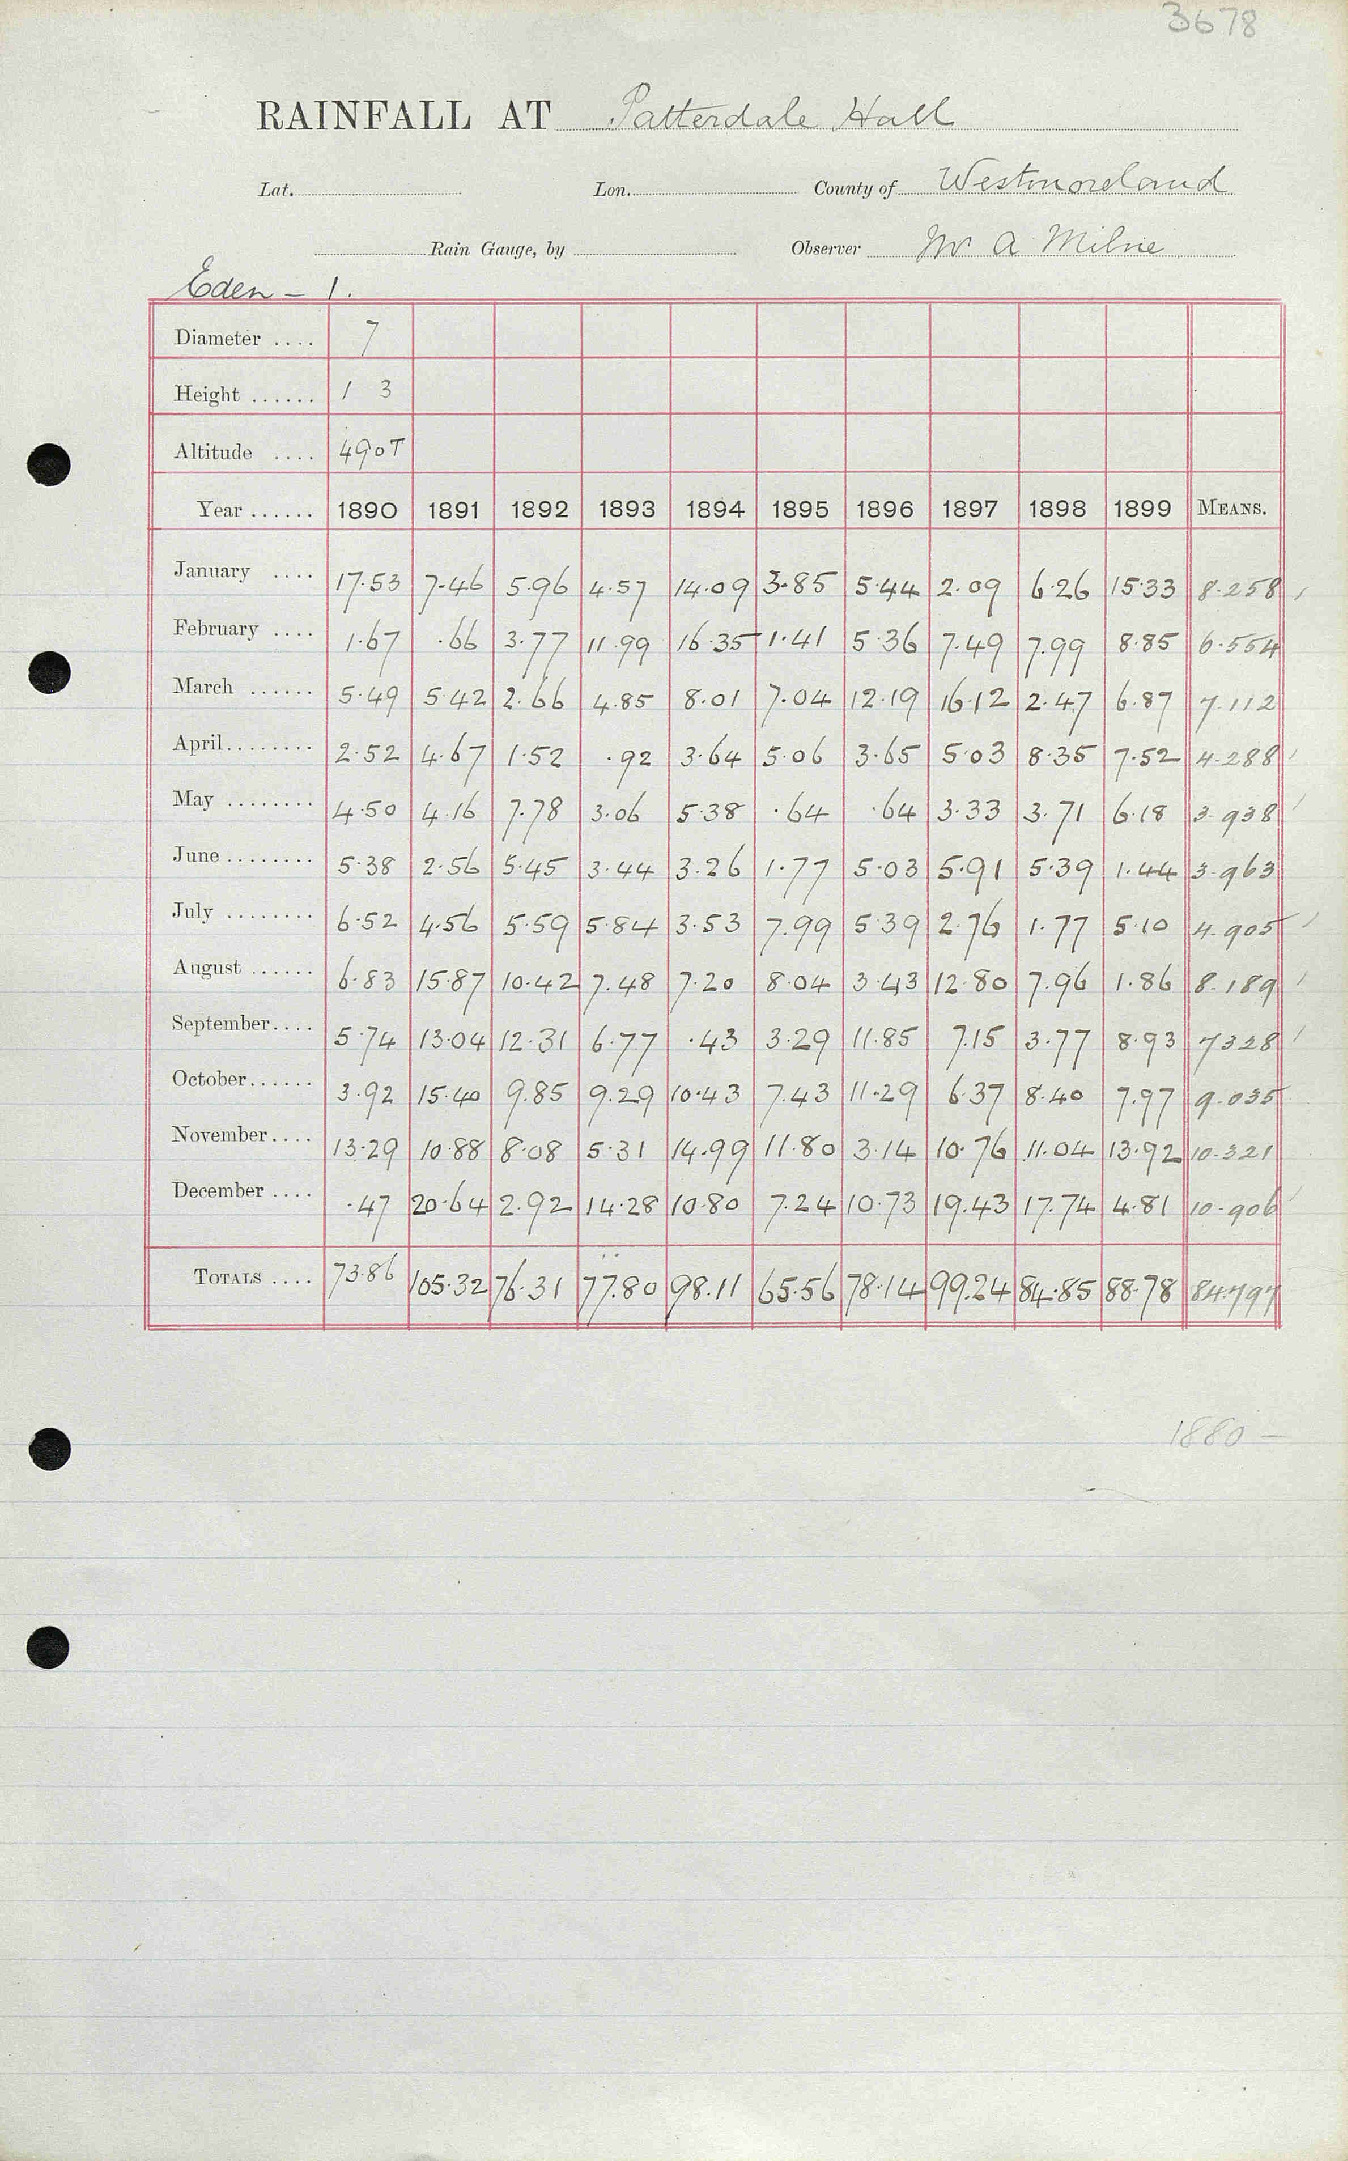 3678
RAINFALL AT Patterdale Hall
Lat. Lon. County of Westmoreland
Rain Gauge, by Observer Mr A Milne
Eden - 1.
Diameter .... 7
Height ...... 1 3
Altitude .... 490T
Year ...... 1890 1891 1892 1893 1894 1895 1896 1897 1898 1899 MEANS.
January .... 17.53 7.46 5.96 4.57 14.09 3.85 5.44 2.09 6.26 15.33 8.258
February .... 1.67 .66 3.77 11.99 16.35 1.41 5.36 7.49 7.99 8.85 6.554
March ...... 5.49 5.42 2.66 4.85 8.01 7.04 12.19 16.12 2.47 6.87 7.112
April ........ 2.52 4.67 1.52 .92 3.64 5.06 3.65 5.03 8.35 7.52 4.288
May ........ 4.50 4.16 7.78 3.06 5.38 .64 .64 3.33 3.71 6.18 3.938
June ........ 5.38 2.56 5.45 3.44 3.26 1.77 5.03 5.91 5.39 1.44 3.963
July ........ 6.52 4.56 5.59 5.84 3.53 7.99 5.39 2.76 1.77 5.10 4.905
August ...... 6.83 15.87 10.42 7.48 7.20 8.04 3.43 12.80 7.96 1.86 8.189
September .... 5.74 13.04 12.31 6.77 .43 3.29 11.85 7.15 3.77 8.93 7328
October ...... 3.92 15.40 9.85 9.29 10.43 7.43 11.29 6.37 8.40 7.97 9.035
November .... 13.29 10.88 8.08 5.31 14.99 11.80 3.14 10.76 11.04 13.92 10.321
December .... .47 20.64 2.92 14.28 10.80 7.24 10.73 19.43 17.74 4.81 10.906
TOTALS .... 73.86 105.32 76.31 77.80 98.11 65.56 78.14 99.24 84.85 88.78 84.797
1880 –